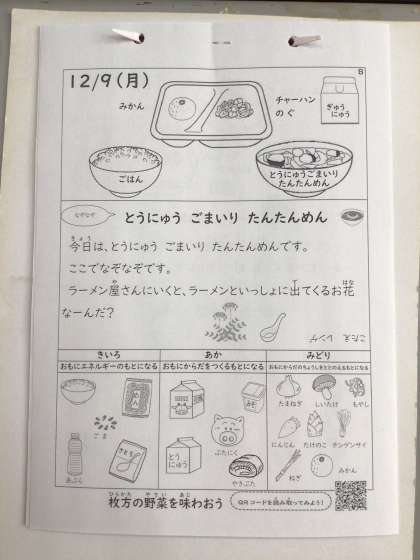 12/9(月)
B
みかん
チャーハン
のぐ
ぎゅう
にゅう
ごはん
とうにゅうごまいり
たんたんめん
なぞなぞ
とうにゅう ごまいり たんたんめん
きょう
今日は、とうにゅう ごまいり たんたんめんです。
ここでなぞなぞです。
や で はな
ラーメン屋さんにいくと、ラーメンといっしょに出てくるお花
なーんだ?
こたえ レンゲ
きいろ
おもにエネルギーのもとになる
ごま
さとう
あぶら
あか
おもにからだをつくるもとになる
みそ
ぶたにく
とう
にゅう
やきぶた
みどり
おもにからだのちょうしをととのえるもとになる
たまねぎ
しいたけ
もやし
にんじん
たけのこ
チンゲンサイ
ねぎ
みかん
ひらかた やさい あじ
枚方の野菜を味わおう
QRコードを読み取ってみよう!